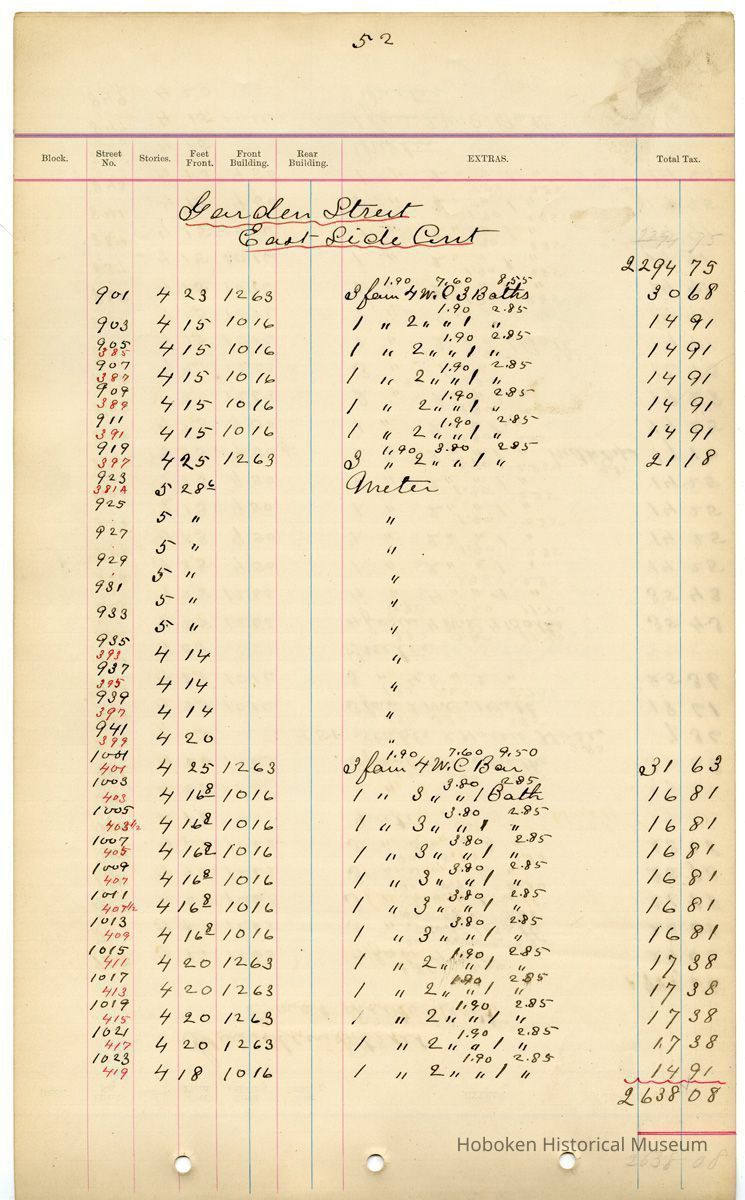 52
Block. Street No. Stories. Feet Front. Front Building. Rear Building. EXTRAS. Total Tax.
Garden Street
East Side Cont
2294 75
1.90 7.60 8.55
901 4 23 12 63 3 fam 4 W.C 3 Baths 30 68
1.90 2.85
903 4 15 10 16 1 " 2 " " 1 " 14 91
905 1.90 2.85
385 4 15 10 16 1 " 2 " " 1 " 14 91
907 1.90 2.85
387 4 15 10 16 1 " 2 " " 1 " 14 91
909 1.90 2.85
389 4 15 10 16 1 " 2 " " 1 " 14 91
911 1.90 2.85
391 4 15 10 16 1 " 2 " " 1 " 14 91
919 1.90 3.80 2.85
397 4 25 12 63 3 " 2 " " 1 " 21 18
923
381A 5 28 6 Meter
925
5 " "
927
5 " "
929
5 " "
931
5 " "
933
5 " "
935
393 4 14 "
937
395 4 14 "
939
397 4 14 "
941
399 4 20 "
1001 1.90 7.60 9.50
401 4 25 12 63 3 fam 4 W.C Bar 31 63
1003 3.80 2.85
403 4 16 8 10 16 1 " 3 " " 1 Bath 16 81
1005 3.80 2.85
403 1/2 4 16 8 10 16 1 " 3 " " 1 " 16 81
1007 3.80 2.85
405 4 16 8 10 16 1 " 3 " " 1 " 16 81
1009 3.80 2.85
407 4 16 8 10 16 1 " 3 " " 1 " 16 81
1011 3.80 2.85
407 1/2 4 16 8 10 16 1 " 3 " " 1 " 16 81
1013 3.80 2.85
409 4 16 8 10 16 1 " 3 " " 1 " 16 81
1015 1.90 2.85
411 4 20 12 63 1 " 2 " " 1 " 17 38
1017 1.90 2.85
413 4 20 12 63 1 " 2 " " 1 " 17 38
1019 1.90 2.85
415 4 20 12 63 1 " 2 " " 1 " 17 38
1021 1.90 2.85
417 4 20 12 63 1 " 2 " " 1 " 17 38
1023 1.90 2.85
419 4 18 10 16 1 " 2 " " 1 " 14 91
2638 08
Hoboken Historical Museum